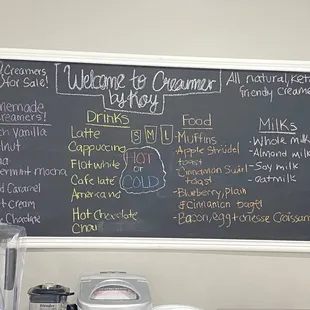 Creamers
for Sale!
Welcome to Creamer
by Kay
All natural, Keto
friendly Creame
Homemade
Creamers!
Vanilla
mocha
Caramel
Cream
Chocolate
Drinks
Latte
S M L
Cappuccino
Flat white
Cafe late
Americano
Hot Chocolate
Chai
HOT
or
COLD
Food
-Muffins
-Apple Strudel
toast
-Cinnamon Swirl
toast
-Blueberry, Plain
& Cinnamon bagel
-Bacon, egg + cheese Croissant
Milks
-Whole milk
-Almond milk
-Soy milk
-oatmilk